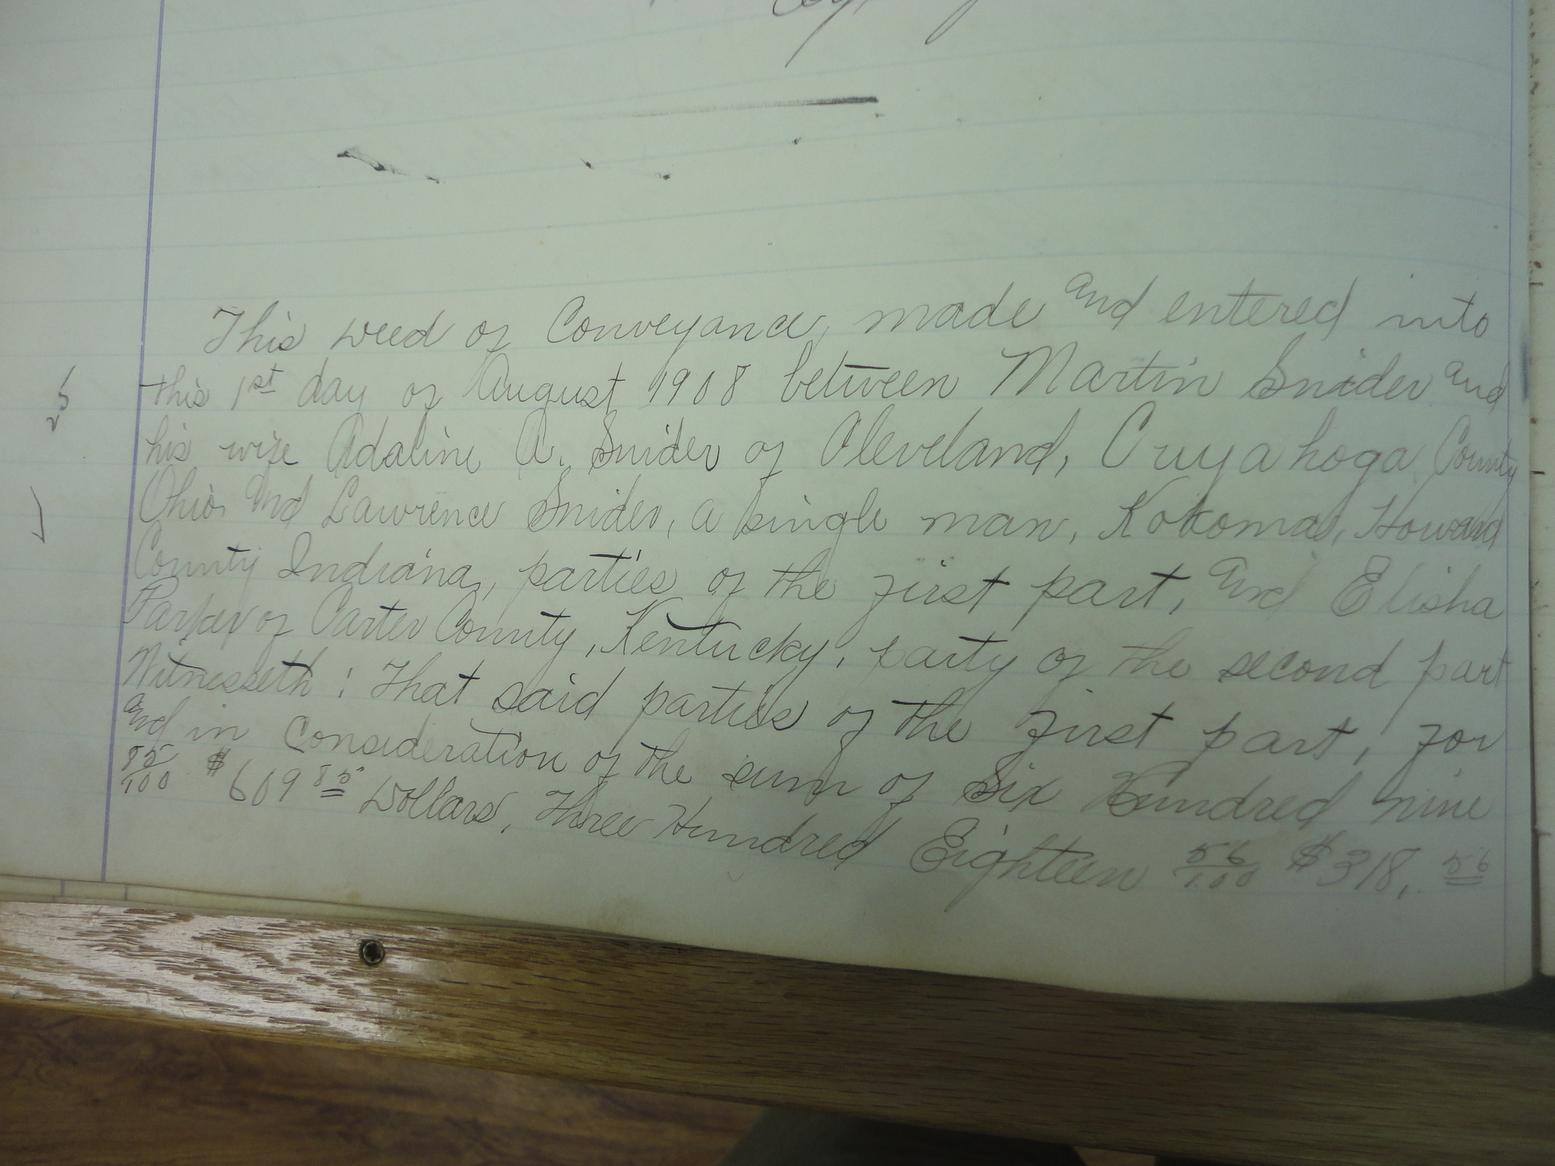 This Deed of Conveyance, made and entered into
this 1st day of August 1908 between Martin Snider and
his wife Adaline A. Snider of Cleveland, Cuyahoga County
Ohio, and Lawrence Snider, a single man, Kokomo, Howard
County Indiana, parties of the first part, and Elisha
Parker of Carter County, Kentucky, party of the second part
Witnesseth: That said parties of the first part, for
and in Consideration of the sum of Six Hundred nine
85/100 $609 85 Dollars, Three Hundred Eighteen 56/100 $318, 56